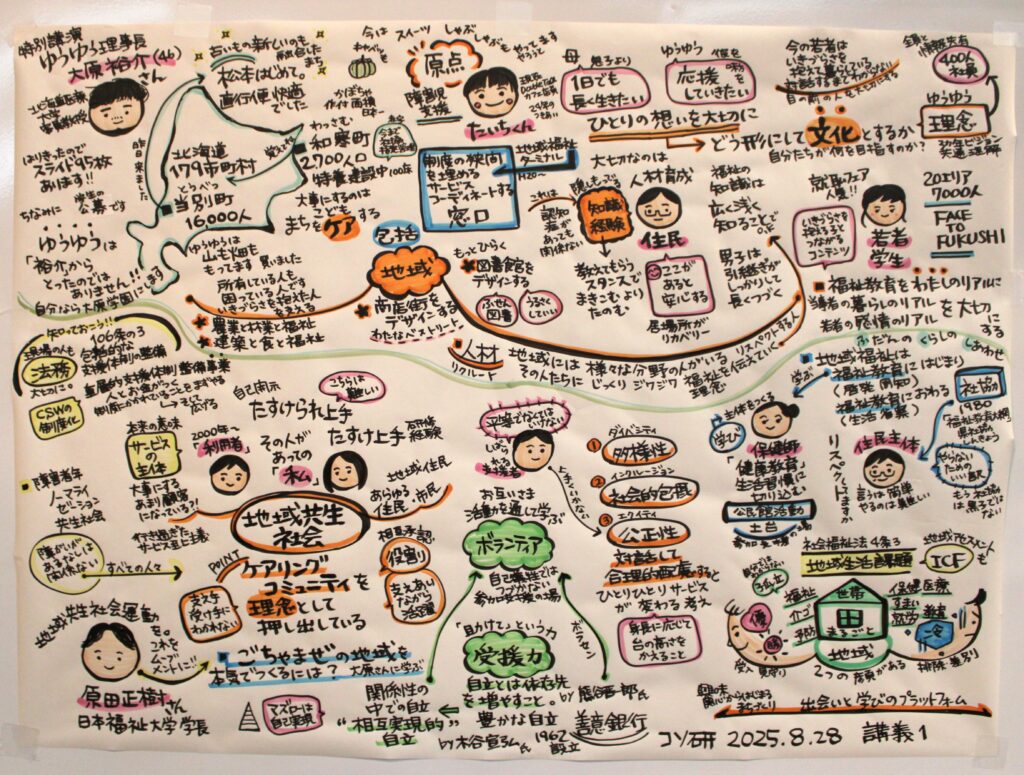 特別講演
ゆうゆう理事長
大原裕介(46)さん
北海道医療
大学
客員教授
はりきったので
スライド95枚
あります!!
ちなみに
学生の
公募です
ゆうゆうは
「裕介から
とったのでは
ありません!!」
自分なら大原学園にします
昨日来ました
古いもの新しいのも
まち
松本はじめて。
直行便快適
でした
北海道
179市町村
とうべつ
当別町
16000人
わっさむ
和寒町
2700人口
かぼちゃ
作付面積
日本一
特養建設中
100床
大事にするのは
こども
まちをケアする
今は
スイーツ
しゃぶ
しゃぶ
やってます
原点
障害児
支援
たいちくん
制度の狭間
を埋める
サービス
コーディネートする
窓口
地域福祉
ターミナル
H20〜
母
息子より
1日でも
長く生きたい
ゆうゆう
応援
していきたい
ひとりの想いを大切に
どう形にして文化とするか?
自分たちが何を目指すか?
今の若者は
いきづらさを
抱えて暮らしている
目の前の人を大切に
400人
社員
ゆうゆう
理念
共通理解
これは
認知
症が
あっても
関係ない
大切なのは
隠しもってる
知識
経験
人材育成
住民
教えてもらう
スタンスで
まきこむより
たのむ
ここが
あると
安心する
居場所が
リカバリー
福祉の
知識は
広く浅く
知ることで
OK
男子は
引き継ぎが
しっかりして
長くつづく
就職フェア
人気!!
いきづらさを
抱える子と
つながる
コンテンツ
若者
学生
20エリア
7000人
FACE
TO
FUKUSHI
福祉教育をわたしのリアルに
当事者の暮らしのリアルを大切
若者の感情のリアル
にする
ゆうゆうは
山も畑も
もってます
買いました
所有している人も
困っている人です
いきづらさを抱えた人
を支える
農業と林業と福祉
建築と食と福祉
包括
地域
もっとひらく
図書館を
デザインする
ふせん
図書
うるさく
していい
商店街を
デザインする
わたなべストリート
人材
リクルート
地域には様々な分野の人がいる
その人たちにじっくりジワジワ福祉を伝えていく
理念
リスペクトする人
知っておこう!!
現場の人も
法務
大切に。
106条の3
包括的な
支援体制の整備
重層的支援体制整備事業
人とお金がつく
制度にかかれていることをまずやる
しっかりそこを
広げる
CSWの
制度化
本来の意味
サービス
の主体
大事にする
あまり顧客
になっている?
行き過ぎた
サービス至上主義
障害者年
ノーマライ
ゼーション
共生社会
障がいが
あるなしは
関係ない
すべての人々
自己開示
たすけられ上手
たすけ上手
こちらは
難しい
2000年〜
「利用者」
その人が
あっての
「私」
地域住民
あらゆる
住民・市民
地域共生
社会
POINT
ケアリング
コミュニティを
理念として
押し出している
支え手
受け手に
わかれない
相互承認
役割
支えあい
ながら
活躍
地域共生社会運動
を。
これを
ムーブ
メントに!!
原田正樹さん
日本福祉大学学長
"ごちゃまぜ"の地域を
本気でつくるには?
大原さんに学ぶ
マズローは
自己実現
関係性の
中での自立
"相互実現的"
自立
by 木谷宜弘氏
平等でなくては
いけない
お互いさま
活動を通して学ぶ
ボランティア
自己犠牲では
つづかない
参加支援の場
「助けて」という力
受援力
自立とは依存先
を増やすこと。
by 熊谷晋一郎氏
豊かな自立
善意銀行
1962
設立
ダイバシティ
①多様性
インクルージョン
②社会的包摂
エクイティ
③公正性
対話をして
合理的配慮すると
ひとりひとりサービス
が変わる考え
身長に応じて
台の高さを
かえること
ふだんのくらしのしあわせ
地域福祉は
福祉教育にはじまり
(啓発周知)
福祉教育におわる
(生活・暮業)
学ぶ
主体をつくる
学び
保健師
「健康教育」
生活習慣に
切り込む。
公民館活動
土台
リスペクトしますか
社協
1980
住民主体
言うは簡単
やるのは難しい
やらない
ための
いい訳
もう社協
は黒子では
ない
社会福祉法4条3
地域生活課題
地域アセスメント
ICF
も
福祉
介ゴ
予防
世帯
まるごと
地域
保健医療
住まい
就労
教育
2つの底力がある
受入・見守り
排除・差別
興味
関心からはじまる
まちづくり
出会いと学びのプラットフォーム
コソ研 2025.8.28 講義1